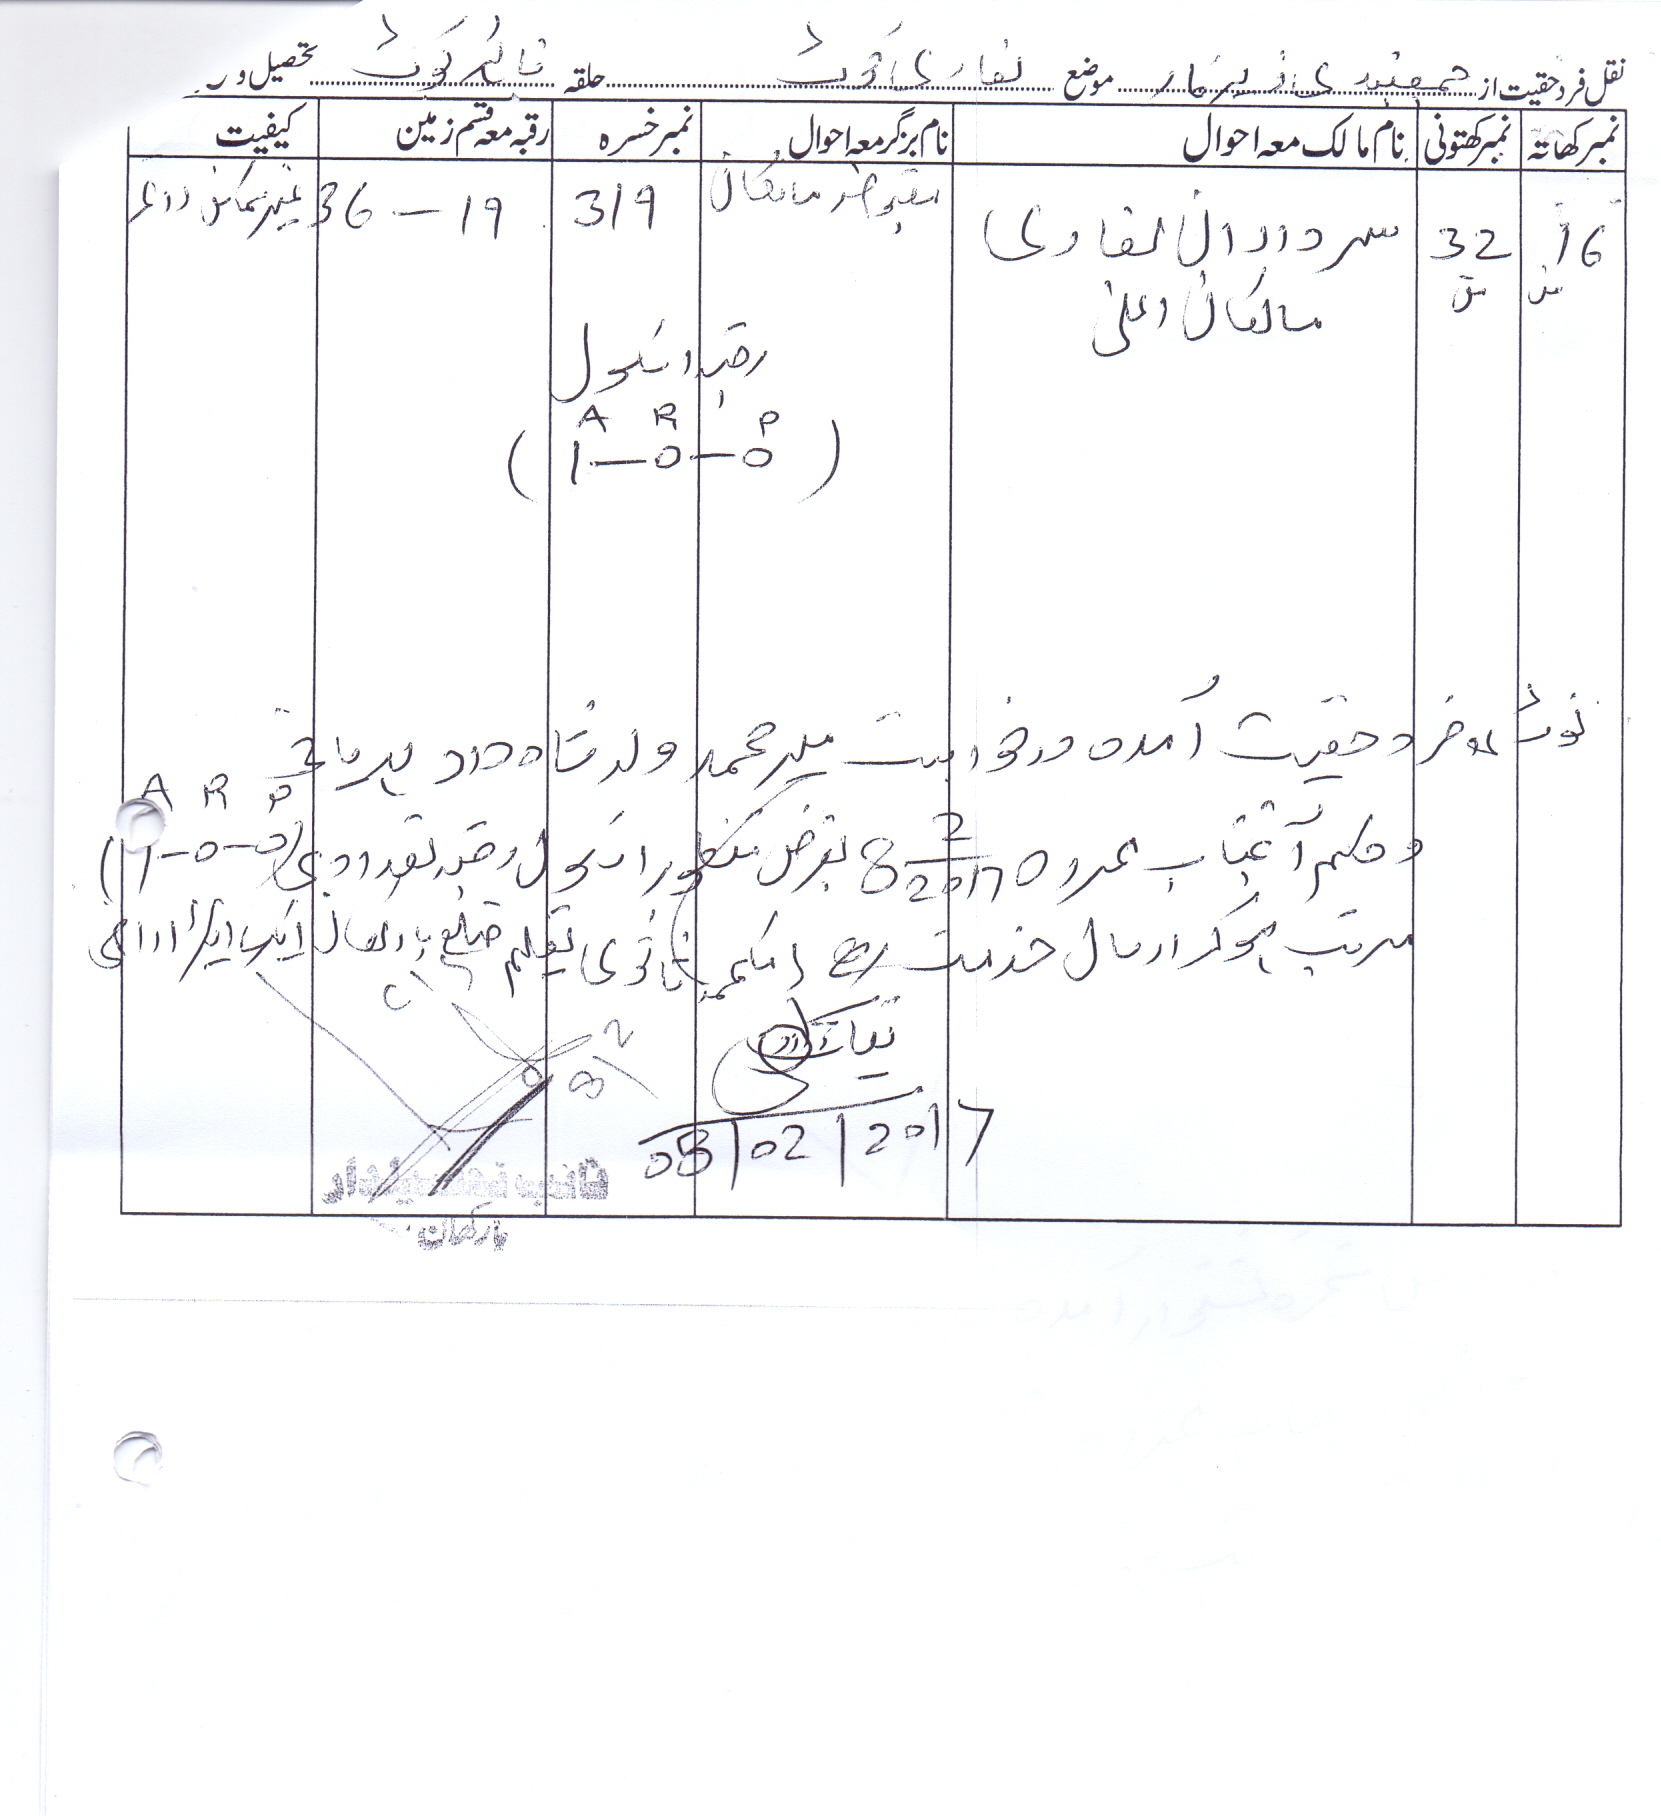 نقل فرد حقیت از جمعبندی موضع لغاری کوٹ حلقہ ناہڑ کوٹ تحصیل و
نمبر کھاتہ نمبر کھتونی نام مالک معہ احوال نام بزگر معہ احوال نمبر خسرہ رقبہ معہ قسم زمین کیفیت
16 32 سرداران لغاری مقبوضہ مالکان 319 36 – 19 غیر ممکن
مالکان اعلیٰ
رقبہ اسکول
A R P
(1–0–0)
نوٹ فرد حقیت آمدہ درخواست میر محمد ولد شاہ داد
A R P
و حکم آنجناب محررہ 8 2/2017 بغرض منظور اسکول رقبہ تعدادی (1–0–0)
مرتب ہوکر ارسال خدمت ہے محکمہ ثانوی تعلیم ضلع بارکھان ایک ایکڑ اراضی
8/2
08/02/2017
نائب تحصیلدار
بارکھان